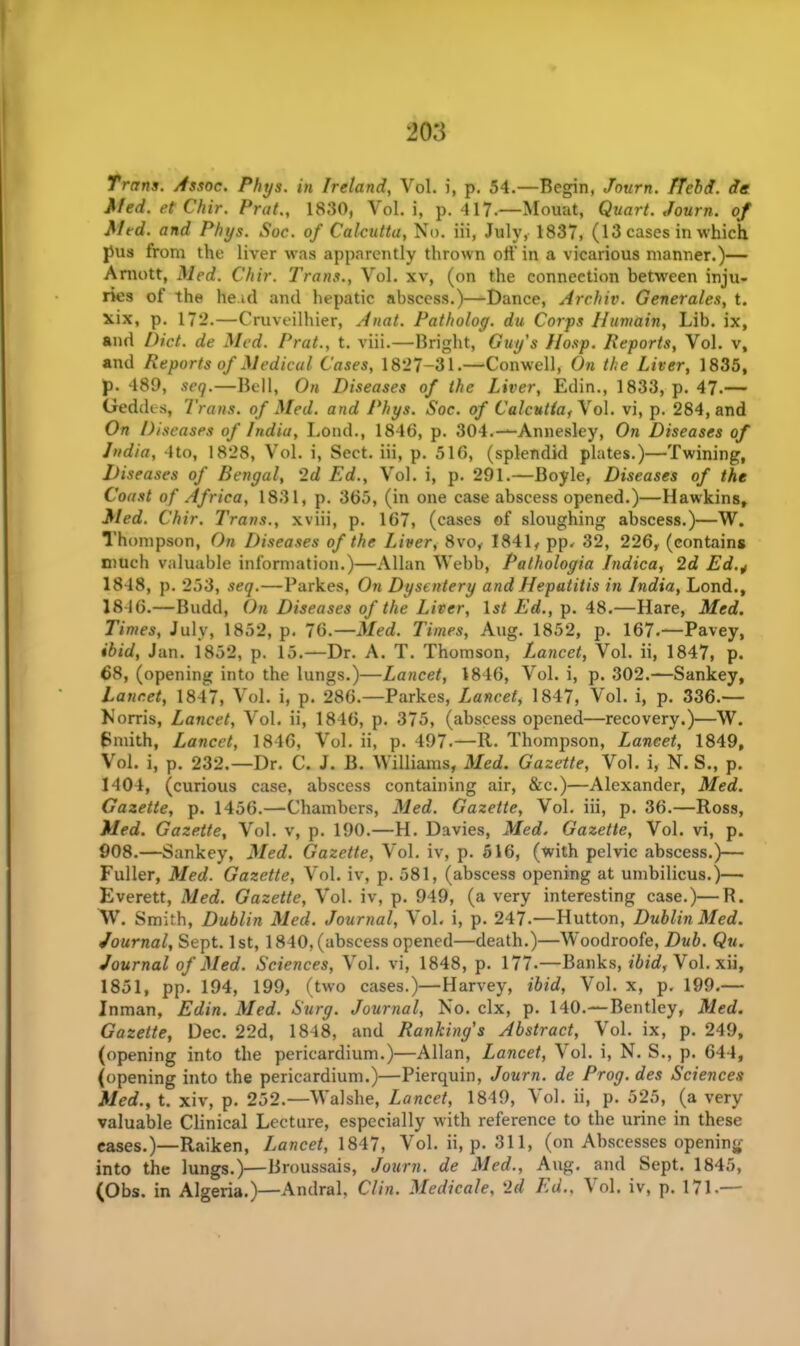 203
Trans. Assoc. Phys. in Ireland, Vol. i, p. 54.—Begin, Journ. Hebd. de
Med. et Chir. Prat., 1830, Vol. i, p. 417.—Mouat, Quart. Journ. of
Med. and Phys. Soc. of Calcutta, No. iii, July, 1837, (13 cases in which
pus from the liver was apparently thrown off in a vicarious manner.)—
Arnott, Med. Chir. Trans., Vol. xv, (on the connection between inju-
ries of the head and hepatic abscess.)—Dance, Archiv. Generales, t.
xix, p. 172.—Cruveilhier, Anat. Patholog. du Corps Humain, Lib. ix,
and Dict. de Med. Prat., t. viii.—Bright, Guy's Hosp. Reports, Vol. v,
and Reports of Medical Cases, 1827-31.—Conwell, On the Liver, 1835,
p. 489, seq.—Bell, On Diseases of the Liver, Edin., 1833, p. 47.—
Geddes, Trans. of Med. and Phys. Soc. of Calcutta, Vol. vi, p. 284, and
On Diseases of India, Lond., 1846, p. 304.—Annesley, On Diseases of
India, 4to, 1828, Vol. i, Sect. iii, p. 516, (splendid plates.)—Twining,
Diseases of Bengal, 2d Ed., Vol. i, p. 291.—Boyle, Diseases of the
Coast of Africa, 1831, p. 365, (in one case abscess opened.)—Hawkins,
Med. Chir. Trans., xviii, p. 167, (cases of sloughing abscess.)—W.
Thompson, On Diseases of the Liver, 8vo, 1841, pp. 32, 226, (contains
much valuable information.)—Allan Webb, Pathologia Indica, 2d Ed.,
1848, p. 253, seq.—Parkes, On Dysentery and Hepatitis in India, Lond.,
1846.—Budd, On Diseases of the Liver, 1st Ed., p. 48.—Hare, Med.
Times, July, 1852, p. 76.—Med. Times, Aug. 1852, p. 167.—Pavey,
ibid, Jan. 1852, p. 15.—Dr. A. T. Thomson, Lancet, Vol. ii, 1847, p.
68, (opening into the lungs.)—Lancet, 1846, Vol. i, p. 302.—Sankey,
Lancet, 1847, Vol. i, p. 286.—Parkes, Lancet, 1847, Vol. i, p. 336.—
Norris, Lancet, Vol. ii, 1846, p. 375, (abscess opened—recovery.)—W.
Smith, Lancet, 1846, Vol. ii, p. 497.—R. Thompson, Lancet, 1849,
Vol. i, p. 232.—Dr. C. J. B. Williams, Med. Gazette, Vol. i, N. S., p.
1404, (curious case, abscess containing air, &c.)—Alexander, Med.
Gazette, p. 1456.—Chambers, Med. Gazette, Vol. iii, p. 36.—Ross,
Med. Gazette, Vol. v, p. 190.—H. Davies, Med. Gazette, Vol. vi, p.
908.—Sankey, Med. Gazette, Vol. iv, p. 516, (with pelvic abscess.)—
Fuller, Med. Gazette, Vol. iv, p. 581, (abscess opening at umbilicus.)—
Everett, Med. Gazette, Vol. iv, p. 949, (a very interesting case.)—R.
W. Smith, Dublin Med. Journal, Vol. i, p. 247.—Hutton, Dublin Med.
Journal, Sept. 1st, 1840, (abscess opened—death.)—Woodroofe, Dub. Qu.
Journal of Med. Sciences, Vol. vi, 1848, p. 177.—Banks, ibid, Vol. xii,
1851, pp. 194, 199, (two cases.)—Harvey, ibid, Vol. x, p. 199.—
Inman, Edin. Med. Surg. Journal, No. clx, p. 140.—Bentley, Med.
Gazette, Dec. 22d, 1848, and Ranking's Abstract, Vol. ix, p. 249,
(opening into the pericardium.)—Allan, Lancet, Vol. i, N. S., p. 644,
(opening into the pericardium.)—Pierquin, Journ. de Prog. des Sciences
Med., t. xiv, p. 252.—Walshe, Lancet, 1849, Vol. ii, p. 525, (a very
valuable Clinical Lecture, especially with reference to the urine in these
cases.)—Raiken, Lancet, 1847, Vol. ii, p. 311, (on Abscesses opening
into the lungs.)—Broussais, Journ. de Med., Aug. and Sept. 1845,
(Obs. in Algeria.)—Andral, Clin. Medicale, 2d Ed., Vol. iv, p. 171.—